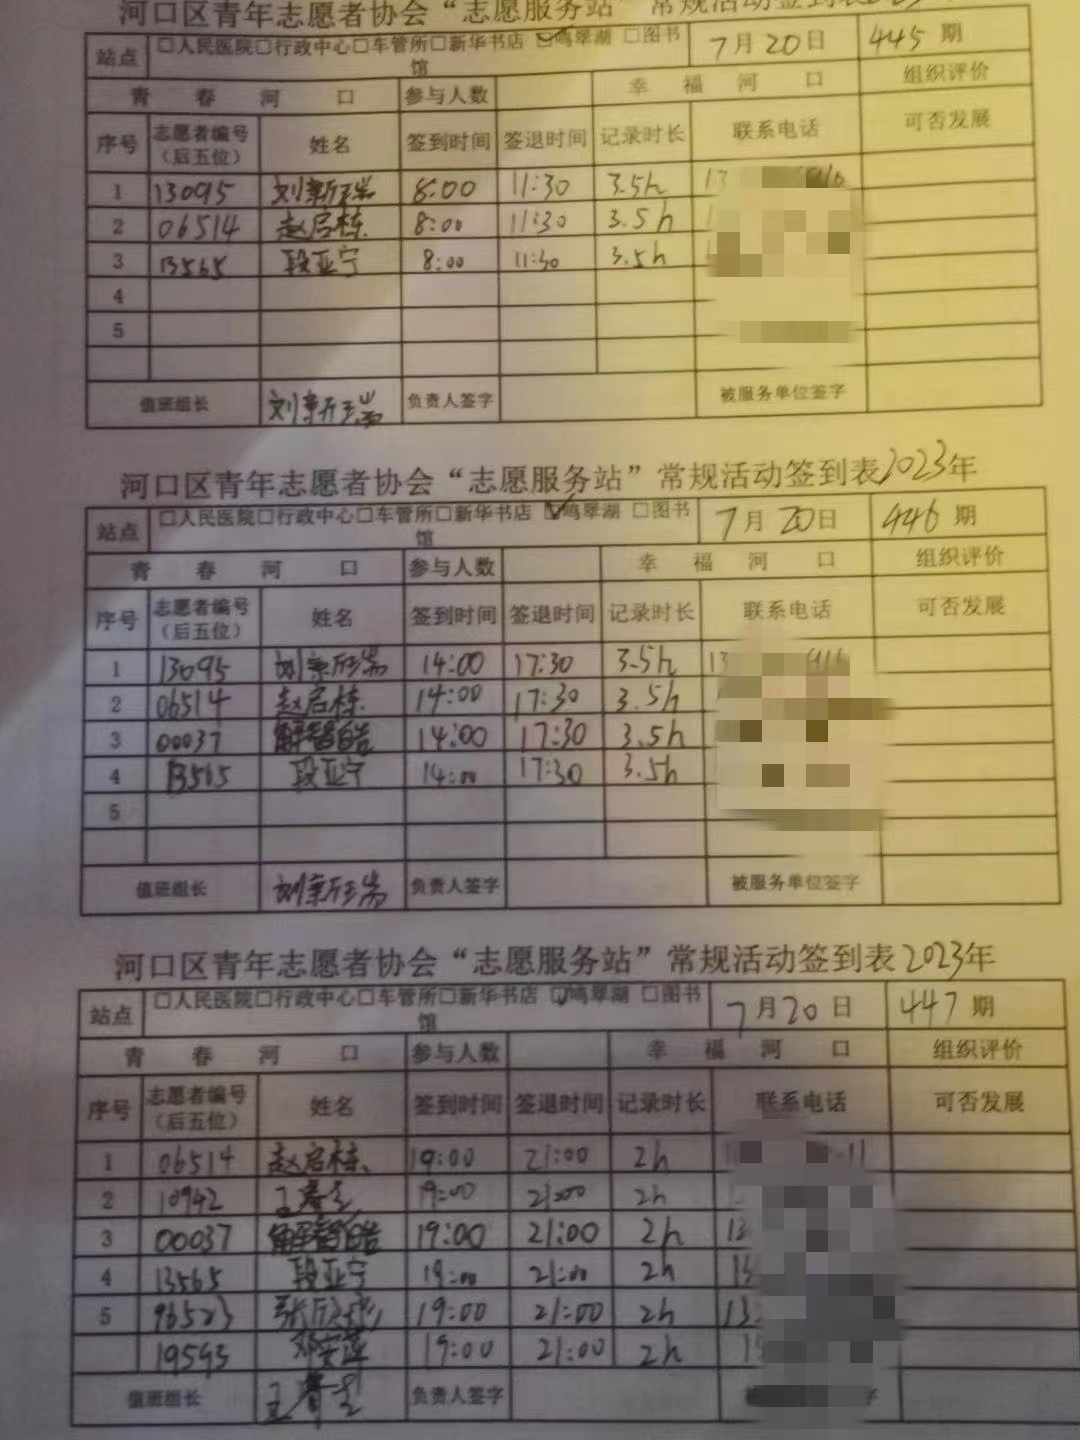 河口区青年志愿者协会“志愿服务站”常规活动签到表2023年
站点 □人民医院□行政中心□车管所□新华书店 ☑鸣翠湖 □图书馆 7月20日 445期
青春河口 参与人数 幸福河口 组织评价
序号 志愿者编号（后五位） 姓名 签到时间 签退时间 记录时长 联系电话 可否发展
1 13095 刘新瑞 8:00 11:30 3.5h 13
2 06514 赵启栋 8:00 11:30 3.5h
3 13565 段亚宁 8:00 11:30 3.5h
4
5
值班组长 刘新瑞 负责人签字 被服务单位签字
河口区青年志愿者协会“志愿服务站”常规活动签到表2023年
站点 □人民医院□行政中心□车管所□新华书店 ☑鸣翠湖 □图书馆 7月20日 446期
青春河口 参与人数 幸福河口 组织评价
序号 志愿者编号（后五位） 姓名 签到时间 签退时间 记录时长 联系电话 可否发展
1 13095 刘新瑞 14:00 17:30 3.5h 13
2 06514 赵启栋 14:00 17:30 3.5h
3 00037 解智皓 14:00 17:30 3.5h
4 13565 段亚宁 14:00 17:30 3.5h
5
值班组长 刘新瑞 负责人签字 被服务单位签字
河口区青年志愿者协会“志愿服务站”常规活动签到表2023年
站点 □人民医院□行政中心□车管所□新华书店 ☑鸣翠湖 □图书馆 7月20日 447期
青春河口 参与人数 幸福河口 组织评价
序号 志愿者编号（后五位） 姓名 签到时间 签退时间 记录时长 联系电话 可否发展
1 06514 赵启栋 19:00 21:00 2h 11
2 10942 王 19:00 21:00 2h
3 00037 解智皓 19:00 21:00 2h
4 13565 段亚宁 19:00 21:00 2h
5 96523 张 19:00 21:00 2h 13
19593 邓安莲 19:00 21:00 2h
值班组长 王 负责人签字 签字